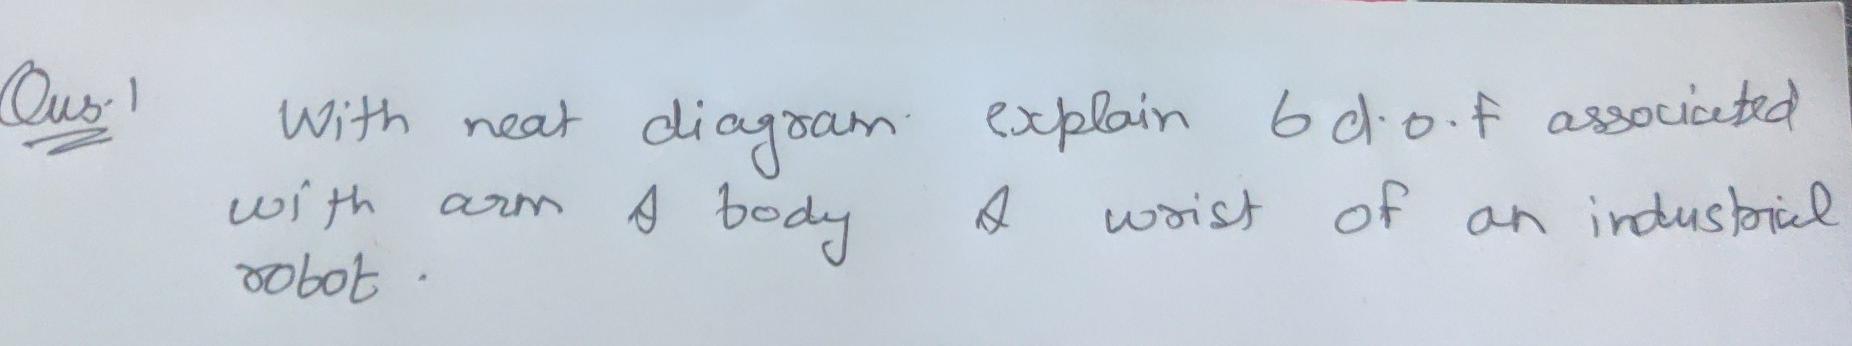 Qus.1 With neat diagram explain 6 d.o.f associated
with arm & body & wrist of an industrial
robot.